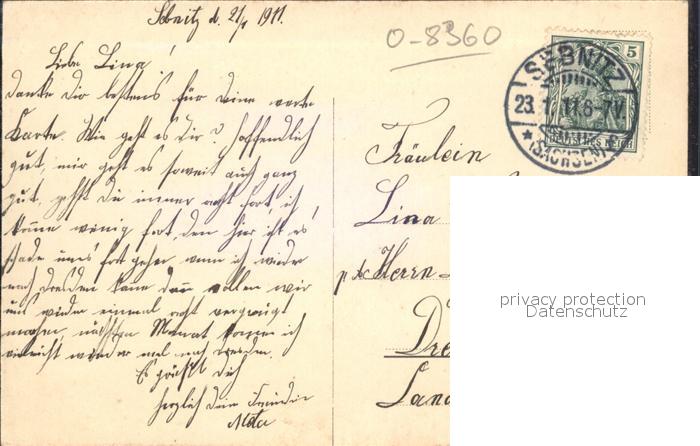 Sebnitz d. 21/1 1911.
O-8360
Liebe Lina!
danke Dir bestens für Deine werte
Karte. Wie geht es Dir? hoffentlich
gut, mir geht es soweit auch ganz
gut, gehst Du immer recht fort, ich
komme wenig fort, denn hier ist es
schade ums fort gehen wenn ich wieder
nach Dresden komme dann wollen wir
uns wieder einmal recht vergnügt
machen, nächsten Monat komme ich
vielleicht wieder mal nach Dresden.
Es grüßt Dich
herzlich Deine Freundin
5
SEBNITZ
23. 1. 11. 6-7 V.
* (SACHSEN)
DEUTSCHES REICH
Fräulein
Lina
Herrn
privacy protection
Datenschutz